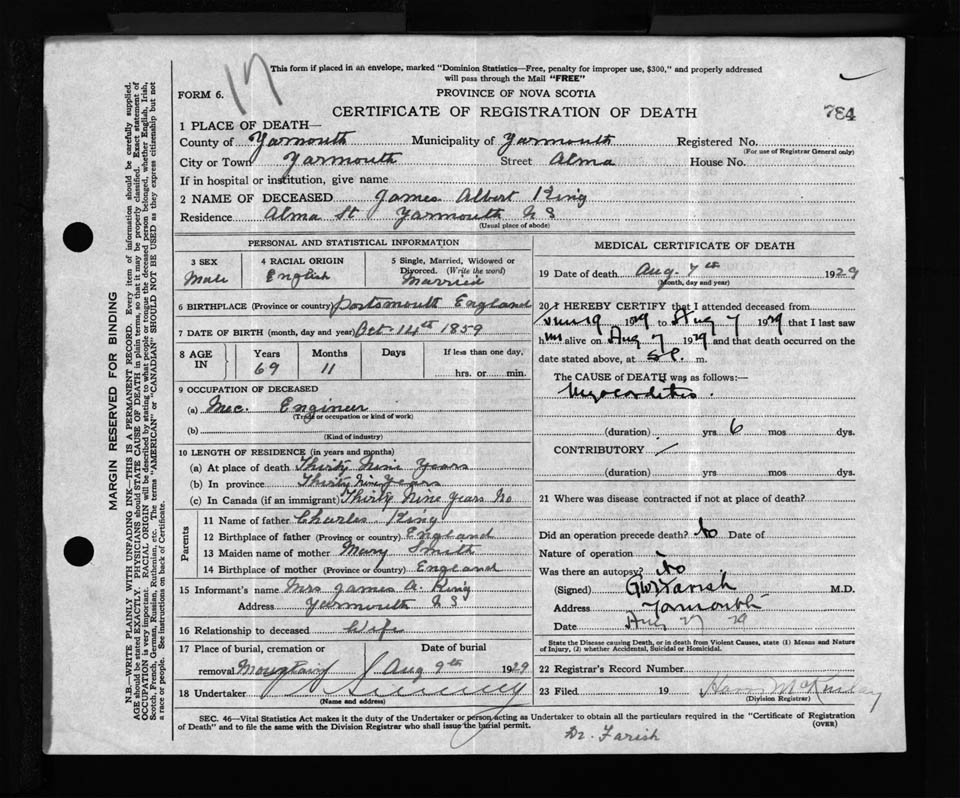 17
This form if placed in an envelope, marked "Dominion Statistics—Free, penalty for improper use, $300," and properly addressed
will pass through the Mail "FREE"
FORM 6.
PROVINCE OF NOVA SCOTIA
CERTIFICATE OF REGISTRATION OF DEATH
784
1 PLACE OF DEATH—
County of Yarmouth Municipality of Yarmouth Registered No.
(For use of Registrar General only)
City or Town Yarmouth Street Alma House No.
If in hospital or institution, give name
2 NAME OF DECEASED James Albert King
Residence Alma St Yarmouth N S
(Usual place of abode)
PERSONAL AND STATISTICAL INFORMATION
3 SEX 4 RACIAL ORIGIN 5 Single, Married, Widowed or
Divorced. (Write the word)
Male English Married
6 BIRTHPLACE (Province or country) Portsmouth England
7 DATE OF BIRTH (month, day and year) Oct 14th 1859
8 AGE IN Years Months Days If less than one day,
69 11 hrs. or min.
9 OCCUPATION OF DECEASED
(a) Mec. Engineer
(Trade or occupation or kind of work)
(b)
(Kind of industry)
10 LENGTH OF RESIDENCE (in years and months)
(a) At place of death Thirty Nine Years
(b) In province Thirty Nine Years
(c) In Canada (if an immigrant) Thirty Nine Years No
Parents
11 Name of father Charles King
12 Birthplace of father (Province or country) England
13 Maiden name of mother Mary Smith
14 Birthplace of mother (Province or country) England
15 Informant's name Mrs James A. King
Address Yarmouth N S
16 Relationship to deceased Wife
17 Place of burial, cremation or Date of burial
removal Aug 9th 1929
18 Undertaker
(Name and address)
MEDICAL CERTIFICATE OF DEATH
19 Date of death Aug. 7th 1929
(Month, day and year)
20 I HEREBY CERTIFY that I attended deceased from
1929 to Aug 7 1929 that I last saw
him alive on Aug 7 1929 and that death occurred on the
date stated above, at m.
The CAUSE of DEATH was as follows:—
Myocarditis.
(duration) yrs 6 mos dys.
CONTRIBUTORY
(duration) yrs. mos dys.
21 Where was disease contracted if not at place of death?
Did an operation precede death? No Date of
Nature of operation
Was there an autopsy? No
(Signed) Farish M.D.
Address Yarmouth
Date Aug 29
State the Disease causing Death, or in death from Violent Causes, state (1) Means and Nature
of Injury, (2) whether Accidental, Suicidal or Homicidal.
22 Registrar's Record Number
23 Filed 19
(Division Registrar)
SEC. 46—Vital Statistics Act makes it the duty of the Undertaker or person acting as Undertaker to obtain all the particulars required in the "Certificate of Registration
of Death" and to file the same with the Division Registrar who shall issue the burial permit.
(OVER)
Dr. Farish
MARGIN RESERVED FOR BINDING
N.B.—WRITE PLAINLY WITH UNFADING INK—THIS IS A PERMANENT RECORD. Every item of information should be carefully supplied.
AGE should be stated EXACTLY. PHYSICIANS should STATE CAUSE OF DEATH in plain terms, so that it may be properly classified. Exact statement of
OCCUPATION is very important. RACIAL ORIGIN will be described by stating to what people or tongue the deceased person belonged, whether English, Irish,
Scotch, French, German, Russian, Ruthenian, etc. The terms "AMERICAN" or "CANADIAN" SHOULD NOT BE USED as they express citizenship but not
a race or people. See instructions on back of Certificate.